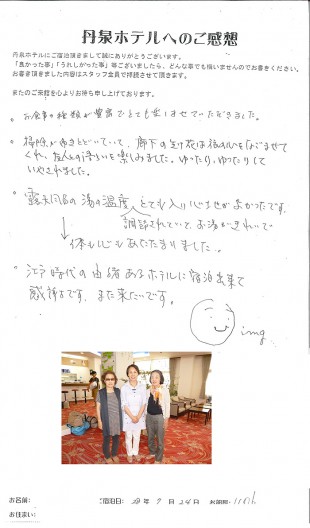 丹泉ホテルへのご感想
丹泉ホテルにご宿泊頂きまして誠にありがとうございます。
「良かった事」「うれしかった事」等ございましたら、どんな事でも構いませんのでお書きください。
お書き頂きました内容はスタッフ全員で拝読させて頂きます。
またのご来館を心よりお待ち申し上げております。
お食事の種類が豊富でとても楽しませていただきました。
掃除が行きとどいていて、廊下の生け花は私の心をなごませて
くれ、友人との語らいを楽しみました。ゆったり、ゆったりして
いやされました。
露天風呂の湯の温度、とても入り心地がよかったです。
調節されていて、お湯がきれいで
体も心もあたたまりました。
江戸時代の由緒あるホテルに宿泊出来て
感謝です。また来たいです。
img
お名前: ご宿泊日: 28年 9月24日 お部屋:
お住まい: